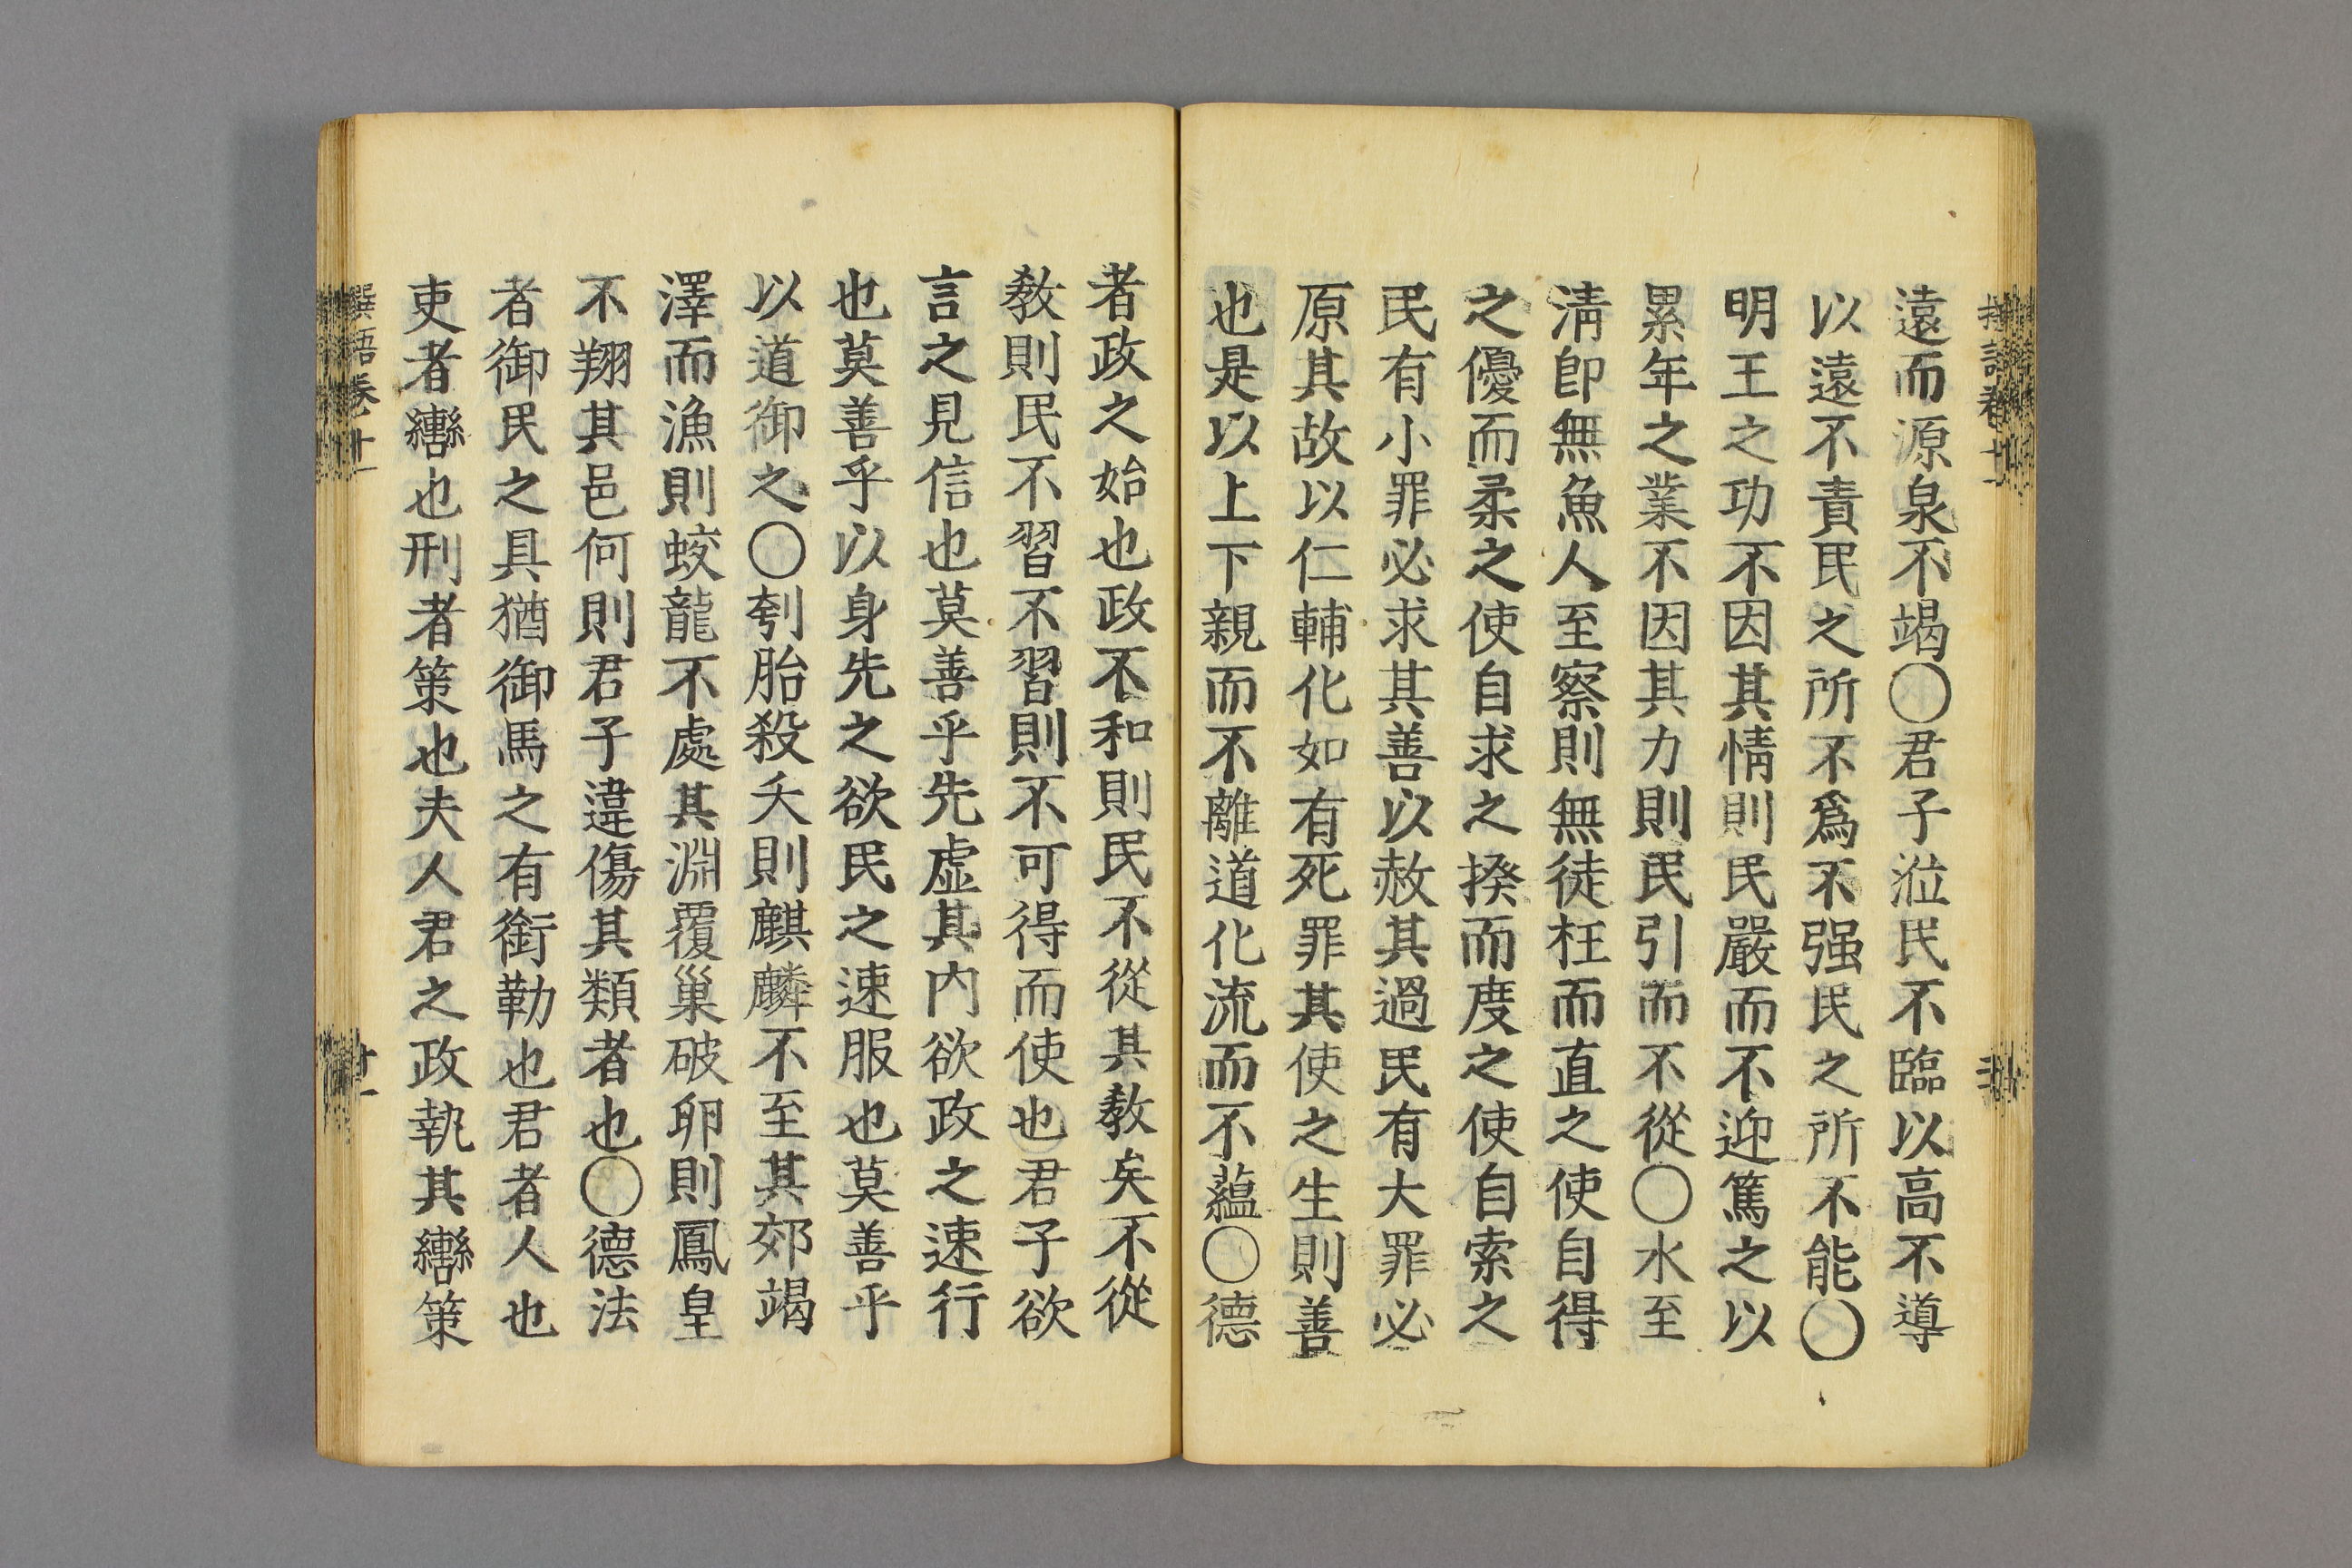 遠而源泉不竭〇君子涖民不臨以高不導
以遠不責民之所不爲不强民之所不能〇
明王之功不因其情則民嚴而不迎篤之以
累年之業不因其力則民引而不從〇水至
淸卽無魚人至察則無徒枉而直之使自得
之優而柔之使自求之揆而度之使自索之
民有小罪必求其善以赦其過民有大罪必
原其故以仁輔化如有死罪其使之生則善
也是以上下親而不離道化流而不蘊〇德
者政之始也政不和則民不從其教矣不從
教則民不習不習則不可得而使也君子欲
言之見信也莫善乎先虛其內欲政之速行
也莫善乎以身先之欲民之速服也莫善乎
以道御之〇刳胎殺夭則麒麟不至其郊竭
澤而漁則蛟龍不處其淵覆巢破卵則鳳皇
不翔其邑何則君子違傷其類者也〇德法
者御民之具猶御馬之有銜勒也君者人也
吏者轡也刑者策也夫人君之政執其轡策
語卷廿一
廿一